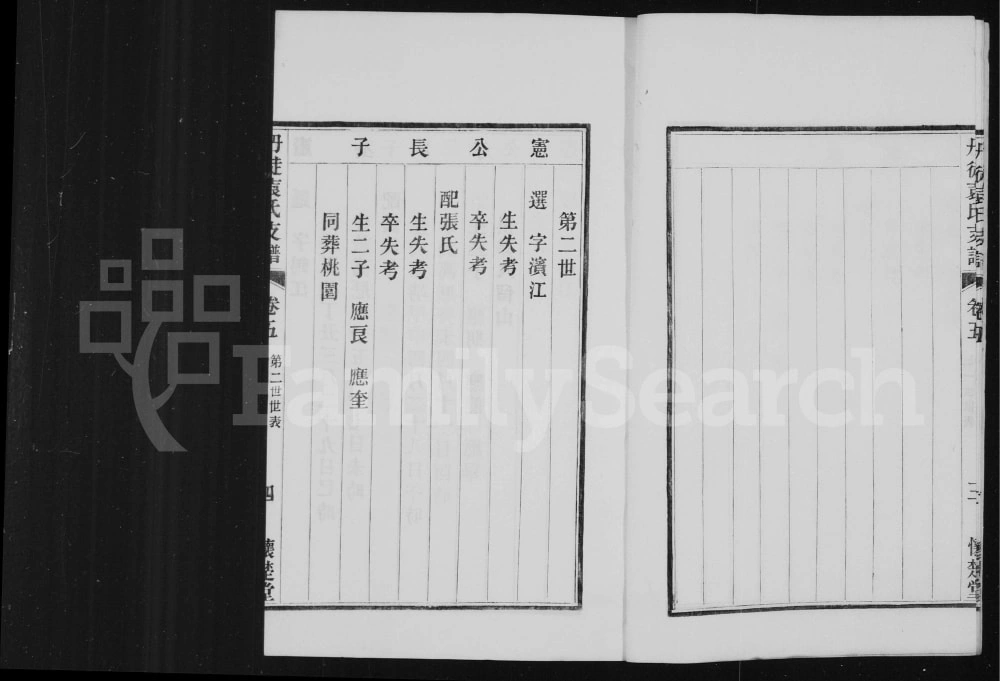 丹徒袁氏支譜
卷五
三
懷楚堂
憲公長子
第二世
選 字濱江
生失考
卒失考
配張氏
生失考
卒失考
生二子 應良 應奎
同葬桃園
丹徒袁氏支譜
卷五
第二世世表
四
懷楚堂
FamilySearch